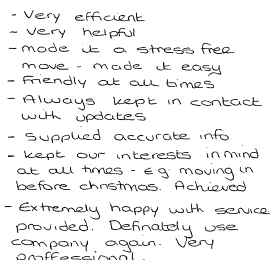 - Very efficient
- Very helpful
- made it a stress free
move - made it easy
- Friendly at all times
- Always kept in contact
with updates
- Supplied accurate info
- kept our interests in mind
at all times - E.g. moving in
before christmas. Achieved
- Extremely happy with service
provided. Definately use
company again. Very
proffessional.